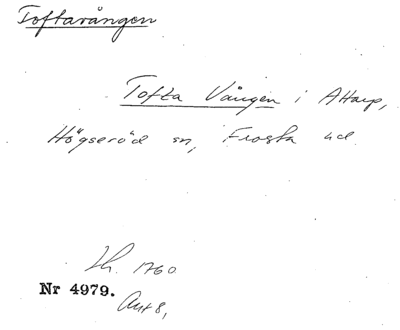 Toftavången
Tofta Vången i Attarp,
Högseröd sn, Frosta hd.
1760
Nr 4979.
Akt 8,